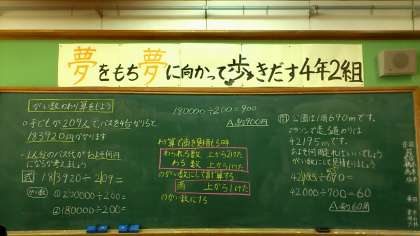 夢をもち夢に向かって歩きだす4年2組
がい数のわり算をしよう
子どもが209人でバスを4台かりると
183920円かかります
1人分のバス代はおよそ何円
になるか考えましょう
式 183920÷209=
がい数
①200000÷200=
②180000÷200=
180000÷200=900
A.約900円
わり算で商を見積もる時
わられる数 上から2けた
わる数 上から1けた
のがい数にして計算する
商 上から1けた
のがい数にする
問 公園は1周690mです。
マラソンで走る道のりは
42195mです。
およそ何周すればいいでしょう
がい数にして見積もりましょう
42195÷690
42000÷700=60
A.約60周